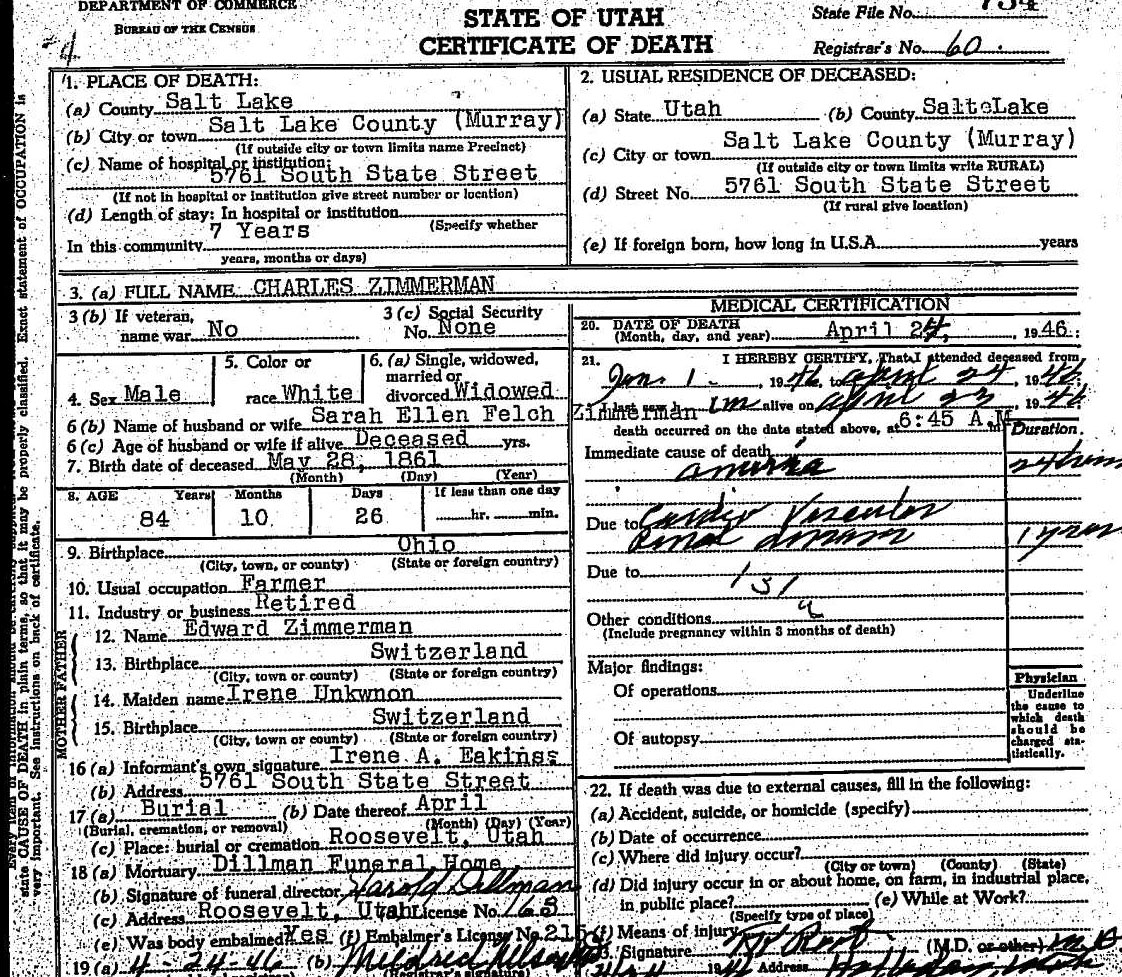 DEPARTMENT OF COMMERCE
BUREAU OF THE CENSUS
STATE OF UTAH
CERTIFICATE OF DEATH
State File No.
Registrar's No. 60.
1. PLACE OF DEATH:
(a) County Salt Lake
(b) City or town Salt Lake County (Murray)
(If outside city or town limits name Precinct)
(c) Name of hospital or institution:
5761 South State Street
(If not in hospital or institution give street number or location)
(d) Length of stay: In hospital or institution
7 Years (Specify whether
In this community
years, months or days)
2. USUAL RESIDENCE OF DECEASED:
(a) State Utah (b) County Salt Lake
Salt Lake County (Murray)
(c) City or town
(If outside city or town limits write RURAL)
(d) Street No. 5761 South State Street
(If rural give location)
(e) If foreign born, how long in U.S.A. years
3. (a) FULL NAME CHARLES ZIMMERMAN
3 (b) If veteran, name war No
3 (c) Social Security No. None
4. Sex Male
5. Color or race White
6. (a) Single, widowed, married or divorced Widowed
6 (b) Name of husband or wife Sarah Ellen Felch Zimmerman
6 (c) Age of husband or wife if alive Deceased yrs.
7. Birth date of deceased May 28, 1861
(Month) (Day) (Year)
8. AGE Years Months Days If less than one day
84 10 26 hr. min.
9. Birthplace Ohio
(City, town, or county) (State or foreign country)
10. Usual occupation Farmer
11. Industry or business Retired
FATHER
12. Name Edward Zimmerman
13. Birthplace Switzerland
(City, town or county) (State or foreign country)
MOTHER
14. Maiden name Irene Unkwnon
15. Birthplace Switzerland
(City, town or county) (State or foreign country)
16 (a) Informant's own signature Irene A. Eakinss
(b) Address 5761 South State Street
17 (a) Burial (b) Date thereof April
(Burial, cremation, or removal) (Month) (Day) (Year)
(c) Place: burial or cremation Roosevelt, Utah
18 (a) Mortuary Dillman Funeral Home
(b) Signature of funeral director Harold Dillman
(c) Address Roosevelt, Utah License No. 168
(e) Was body embalmed Yes (f) Embalmer's License No. 215
19 (a) 4-24-46 (b) Mildred
(Registrar's signature)
MEDICAL CERTIFICATION
20. DATE OF DEATH
(Month, day, and year) April 24, 1946.
21. I HEREBY CERTIFY, That I attended deceased from
Jan. 1 - , 1946, to April 24, 1946
im alive on April 23, 1946
death occurred on the date stated above, at 6:45 A.M
Duration.
Immediate cause of death
anuria
Due to Cardio Vascular
Renal disease 1 year
Due to
131
a
Other conditions
(Include pregnancy within 3 months of death)
Major findings:
Of operations
Of autopsy
Physician
Underline the cause to which death should be charged statistically.
22. If death was due to external causes, fill in the following:
(a) Accident, suicide, or homicide (specify)
(b) Date of occurrence
(c) Where did injury occur?
(City or town) (County) (State)
(d) Did injury occur in or about home, on farm, in industrial place,
in public place? (e) While at Work?
(Specify type of place)
(f) Means of injury
Signature (M.D. or other) M.D.
Address
Exact statement of OCCUPATION is
state CAUSE OF DEATH in plain terms, so that it may be properly classified.
very important. See instructions on back of certificate.